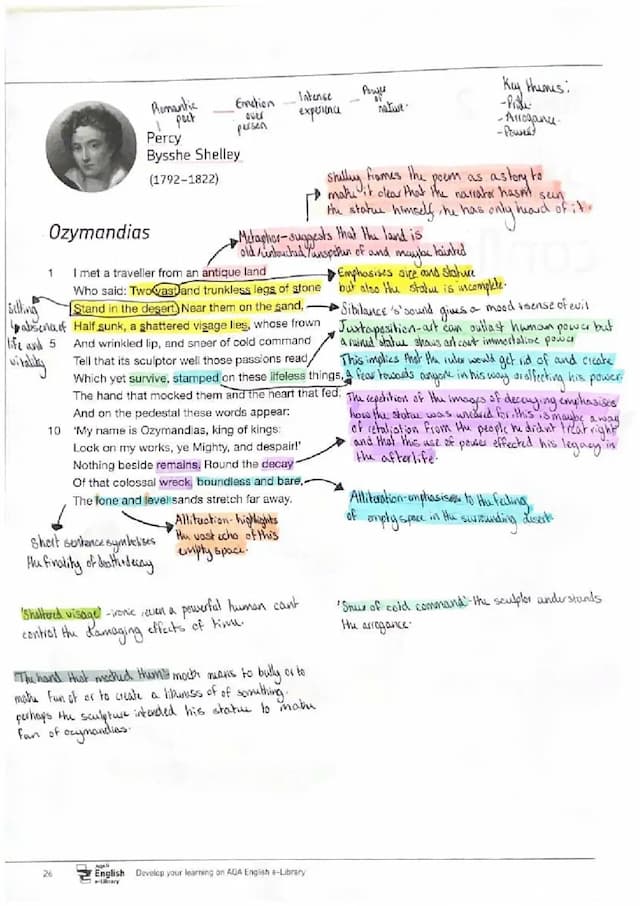 Romantic poet — Emotion over person — Intense experience — Power of nature.
Key themes:
- Pride
- Arrogance
- Power
Percy
Bysshe Shelley
(1792–1822)
Shelley frames the poem as a story to
make it clear that the narrator hasnt seen
the statue himself, he has only heard of it.
Ozymandias
Metaphor - suggests that the land is
old/untouched/unspoken of and maybe tainted
1 I met a traveller from an antique land
Who said: Two vast and trunkless legs of stone
Stand in the desert. Near them on the sand,
Half sunk, a shattered visage lies, whose frown
5 And wrinkled lip, and sneer of cold command
Tell that its sculptor well those passions read
Which yet survive, stamped on these lifeless things,
The hand that mocked them and the heart that fed.
And on the pedestal these words appear:
10 ‘My name is Ozymandias, king of kings:
Look on my works, ye Mighty, and despair!’
Nothing beside remains. Round the decay
Of that colossal wreck, boundless and bare,
The lone and level sands stretch far away.
Setting
absence of
life and
vitality
Emphasises size and stature
but also the statue is incomplete.
Sibilance 's' sound gives a mood + sense of evil
Juxtaposition - art can outlast human power but
a ruined statue shows art cant immortalise power
This implies that the ruler would get rid of and create
a fear towards anyone in his way or affecting his power.
The repetition of the images of decaying emphasises
how the statue was uncared for, this is maybe a way
of retaliation from the people he didnt treat right
and that this use of power effected his legacy in
the afterlife.
Alliteration - emphasises to the feeling
of empty space in the surrounding desert.
Alliteration - highlights
the vast echo of this
empty space.
Short sentence symbolises
the finality of death + decay
'Shattered visage' - ironic, even a powerful human cant
control the damaging effects of time.
'Sneer of cold command' - the sculptor understands
the arrogance.
'The hand that mocked them' mock means to bully or to
make fun of or to create a likeness of of something.
perhaps the sculpture intended his statue to make
fun of ozymandias.
26 AQA English e-Library Develop your learning on AQA English e-Library